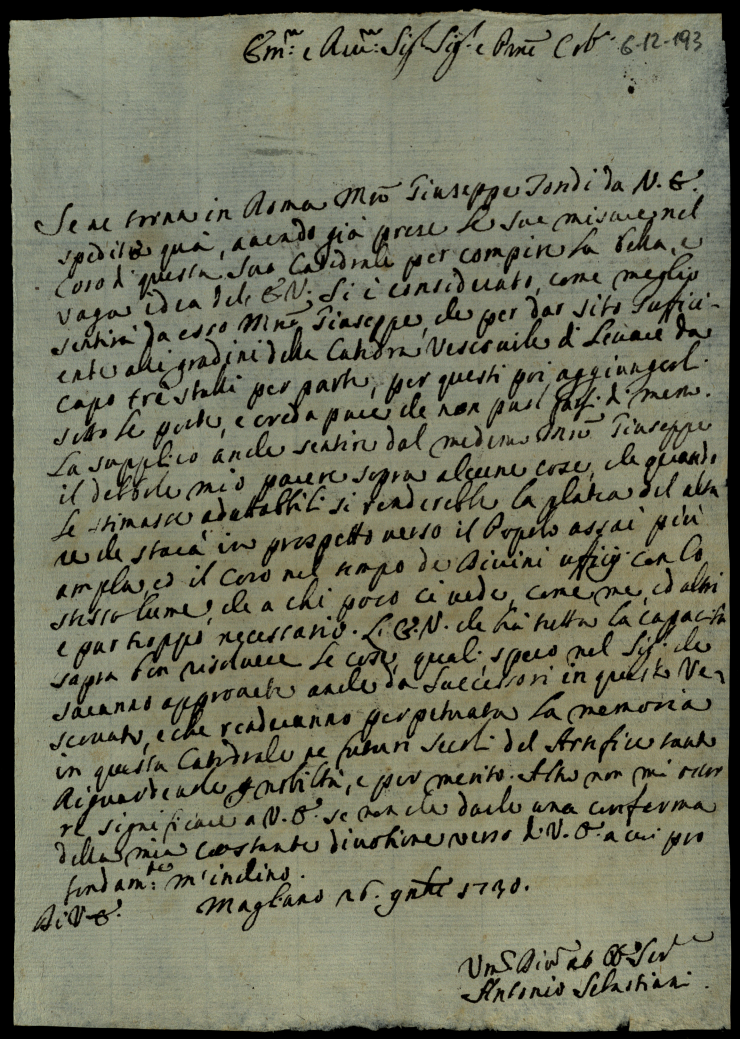 Em.mo e Rev.mo Sig.r Sig.r e Prone
6-12-193
Se ne torna in Roma Mro Giuseppe Tondi da V. E.
spedito quà, avendo già prese le sue misure nel
coro di questa sua Catedrale per compire la bella, e
vaga idea dell' E.V. Si è considerato, come meglio
sentirà da esso Mro Giuseppe, che per dar sito suffici-
ente alli gradini della Catedra Vescovile di levare da
capo trè stalli per parte, per questi poi aggiungerli
sotto le porte, e creda pure che non può farsi di meno.
La supplico anche sentire dal medemo Mro Giuseppe
il debole mio parere sopra alcune cose, che quando
le stimasse adattabili si renderebbe la platea del alta-
re che starà in prospetto verso il Popolo assai più
ampla, ed il Coro nel tempo de Divini uffizij con lo
stesso lume, che a chi poco ci vede, come me, ed altri
è pur troppo necessario. L' E.V. che hà tutta la capacità
saprà ben risolvere le cose, quali spero nel Sig.r che
saranno approvate anche da Successori in questo Ve-
scovato, e che renderanno perpetuata la memoria
in questa Catedrale ne futuri secoli del Artefice tanto
Riguardevole p nobiltà, e per merito. Altro non mi occor
re significare a V. E. se non che darle una conferma
della mia costante divotione verso di V. E. a cui pro
fondam.te m'inclino.
Di V. E. Magliano 26. gnbre 1730.
Um.o Div.o ed Obb.o Ser.e
Antonio Sebastiani.